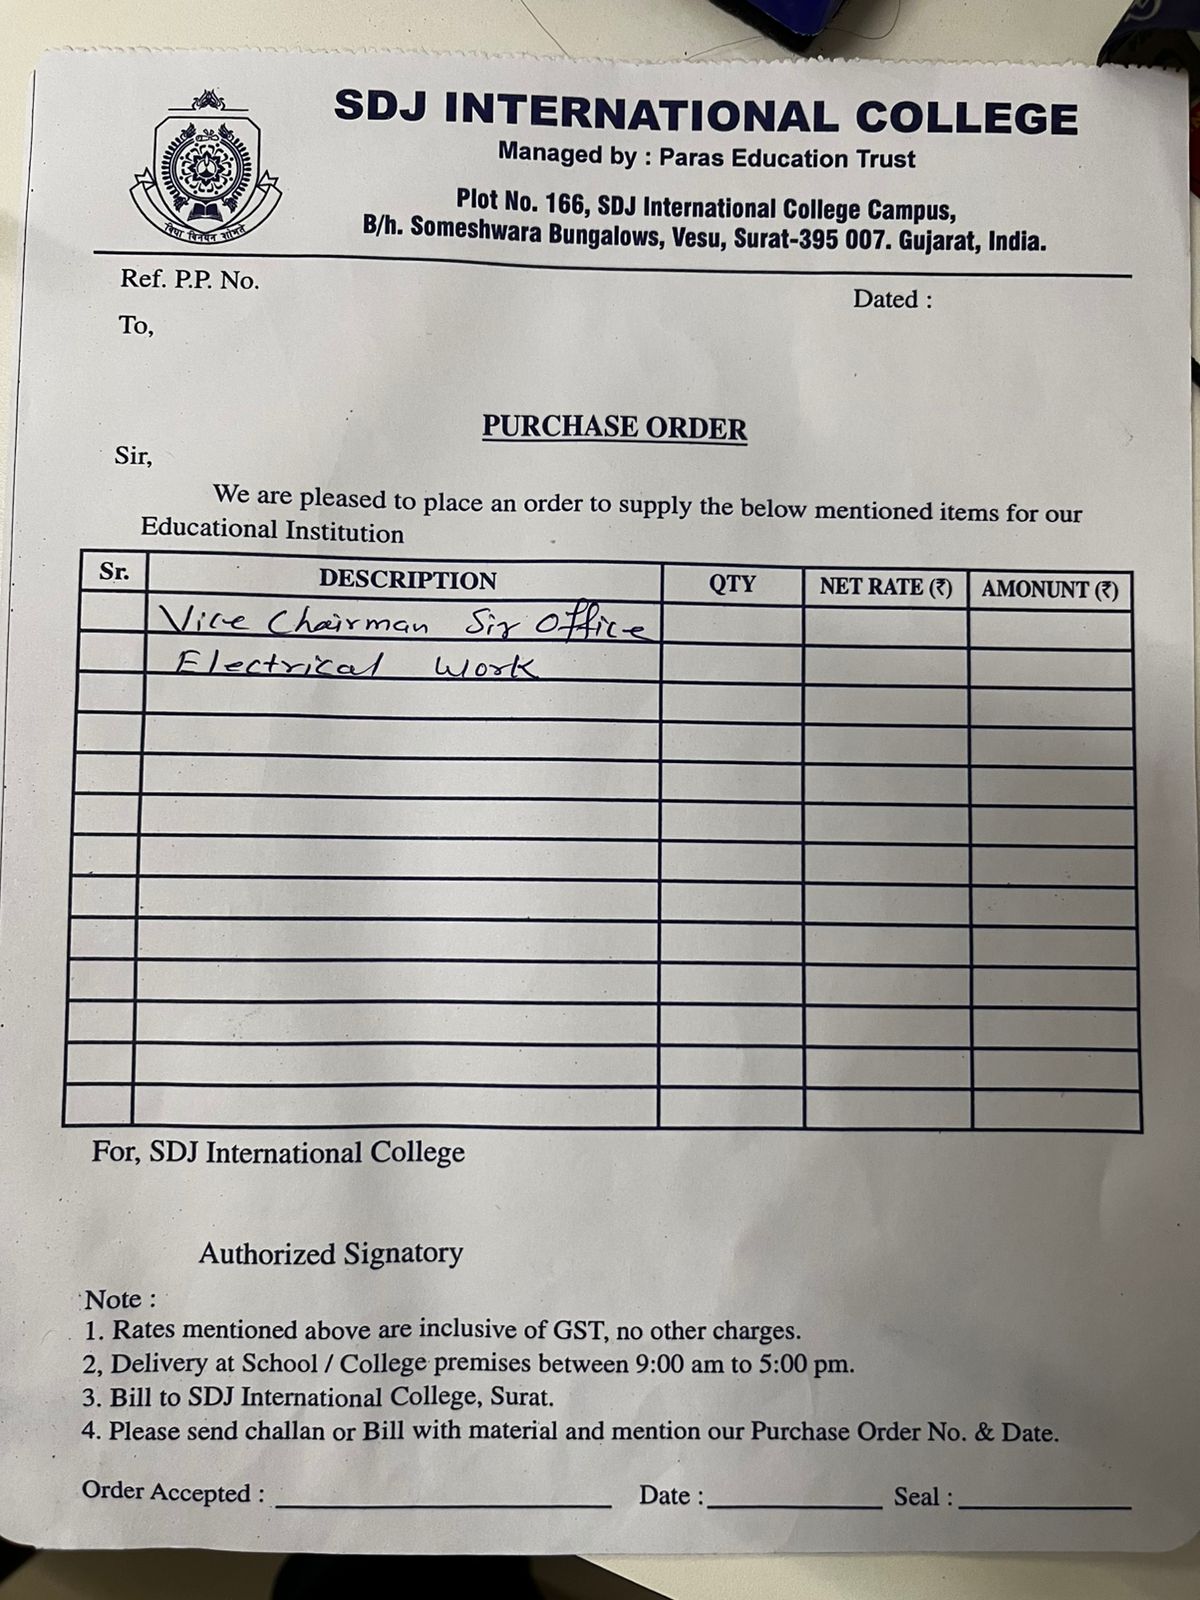 विद्या विनयेन शोभते
SDJ INTERNATIONAL COLLEGE
Managed by : Paras Education Trust
Plot No. 166, SDJ International College Campus,
B/h. Someshwara Bungalows, Vesu, Surat-395 007. Gujarat, India.
Ref. P.P. No.
Dated :
To,
PURCHASE ORDER
Sir,
We are pleased to place an order to supply the below mentioned items for our
Educational Institution
Sr. DESCRIPTION QTY NET RATE (₹) AMONUNT (₹)
Vice Chairman Sir Office
Electrical Work
For, SDJ International College
Authorized Signatory
Note :
1. Rates mentioned above are inclusive of GST, no other charges.
2, Delivery at School / College premises between 9:00 am to 5:00 pm.
3. Bill to SDJ International College, Surat.
4. Please send challan or Bill with material and mention our Purchase Order No. & Date.
Order Accepted : Date : Seal :